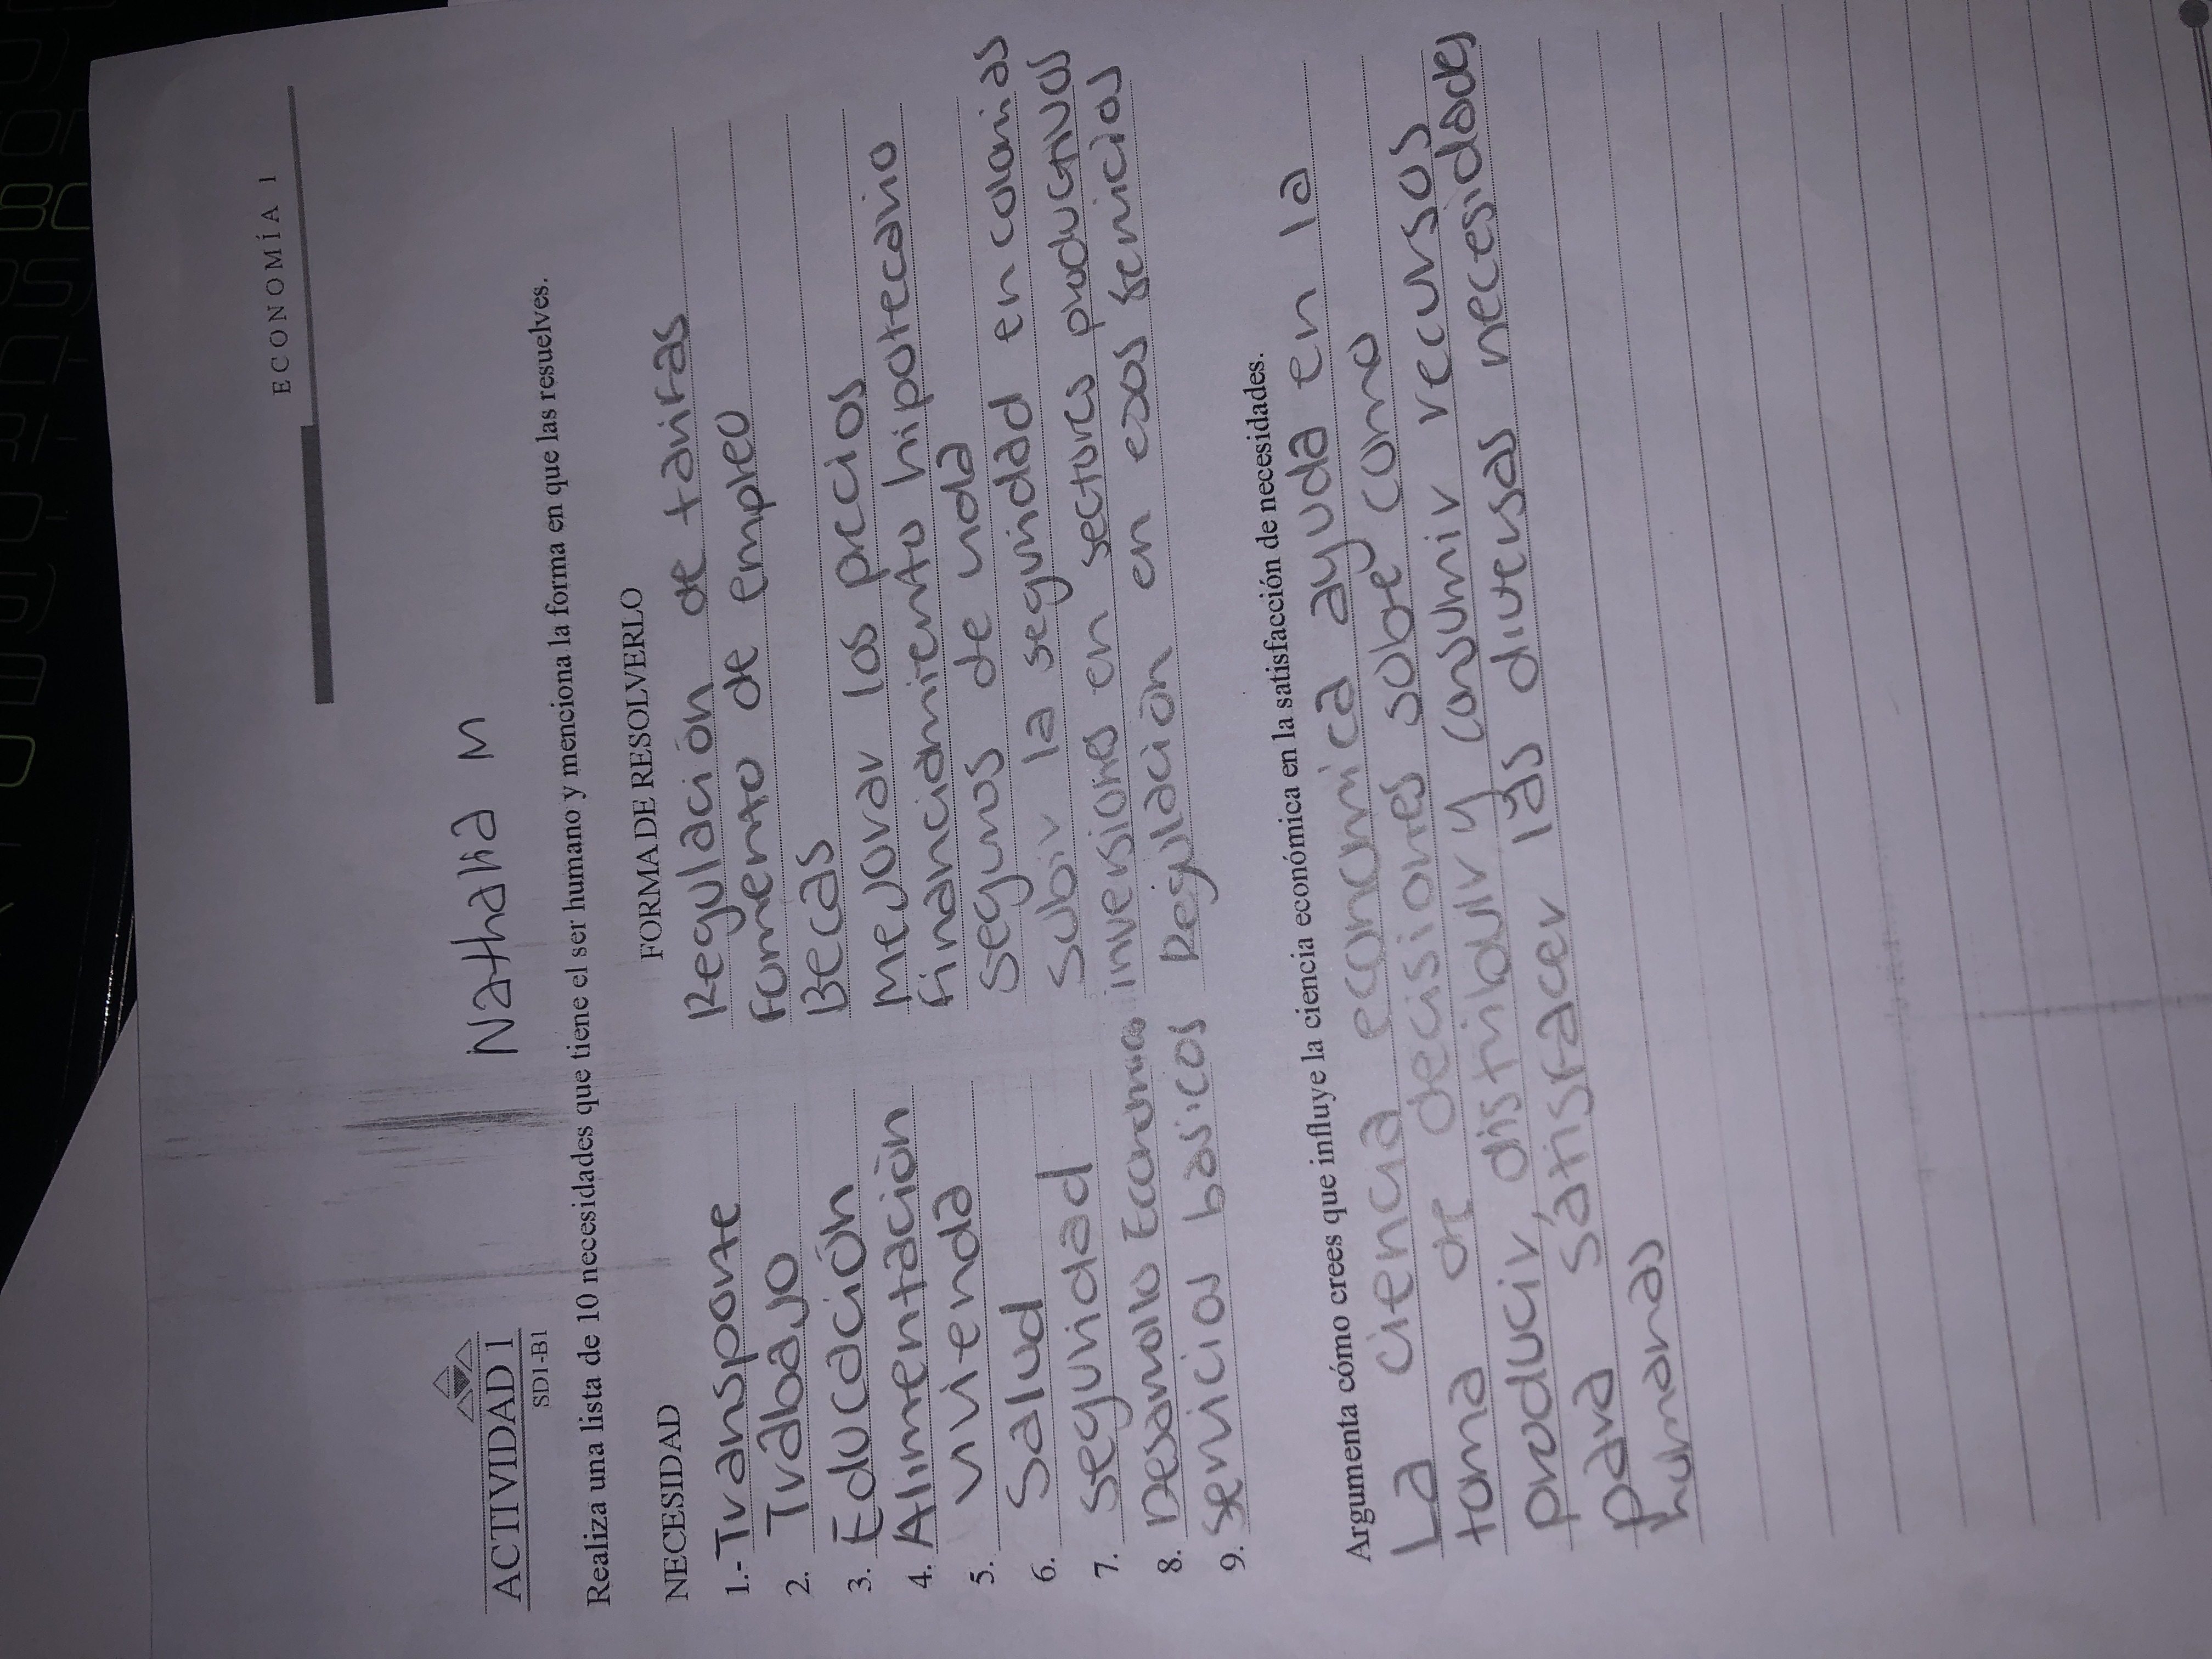 ECONOMÍA 1
ACTIVIDAD 1
SD1-B1
Nathalia M
Realiza una lista de 10 necesidades que tiene el ser humano y menciona la forma en que las resuelves.
NECESIDAD FORMA DE RESOLVERLO
1.- Transporte Regulación de tarifas
2. Trabajo Fomento de empleo
3. Educación Becas
4. Alimentación Mejorar los precios
5. vivienda Financiamiento hipotecario
6. Salud seguros de vida
7. seguridad Subir la seguridad en colonias
8. Desarrollo Economico inversiones en sectores productivos
9. servicios basicos Regulación en esos servicios
Argumenta cómo crees que influye la ciencia económica en la satisfacción de necesidades.
La ciencia economica ayuda en la
toma de decisiones sobe como
producir, distribuir y consumir recursos
para satisfacer las diversas necesidades
humanas